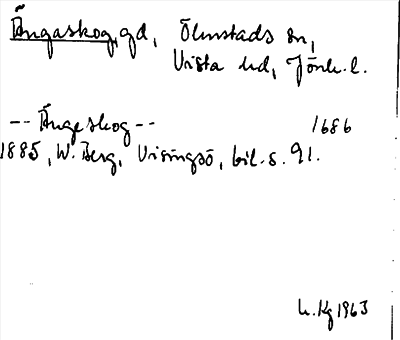 Ängaskog, gd, Ölmstads sn,
Vista hd, Jönk. l.
-- Ängeskog -- 1686
1885, W. Berg, Visingsö, bil. s. 91.
h. Kg 1963